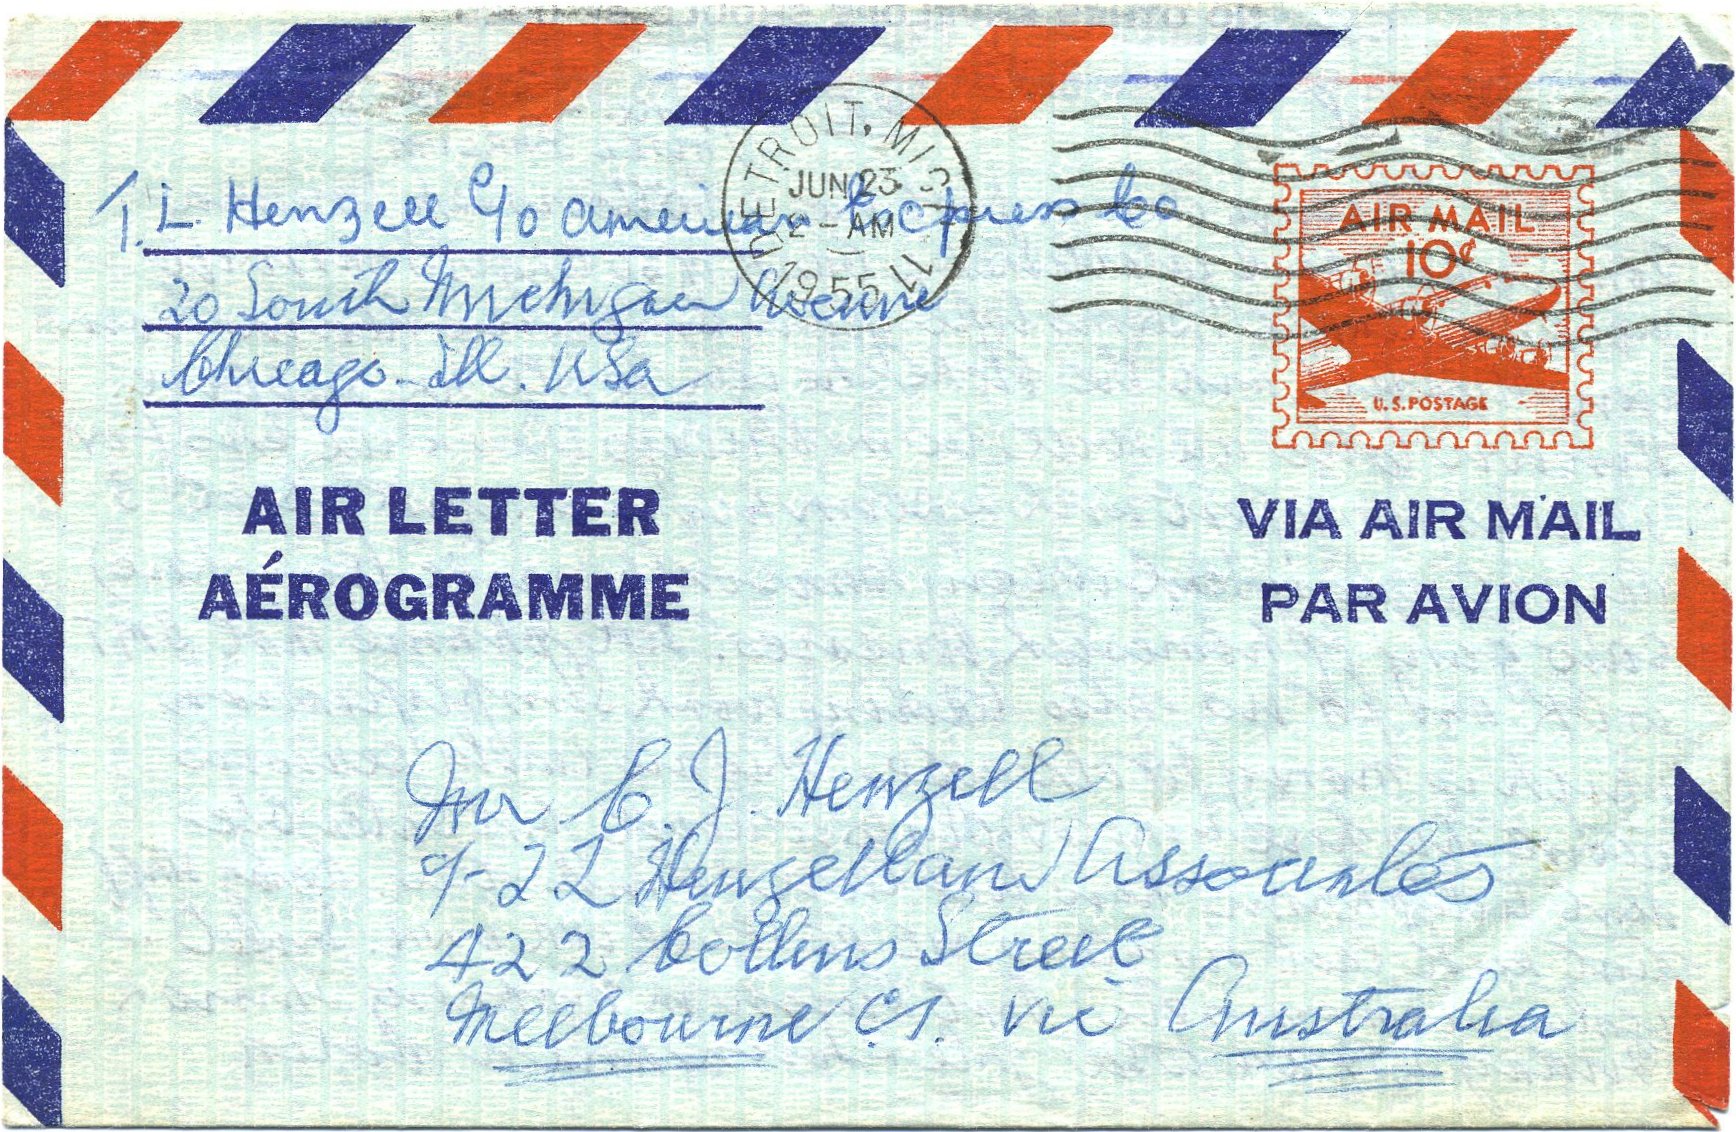 T. L. Henzell c/o American Express Co
20 South Michigan Avenue
Chicago - Ill. USA
DETROIT, MICH
JUN 23
2 - AM
1955
AIR MAIL
10¢
U.S. POSTAGE
AIR LETTER
AÉROGRAMME
VIA AIR MAIL
PAR AVION
Mr C. J. Henzell
Henzell and Associates
422 Collins Street
Melbourne C1. Vic Australia